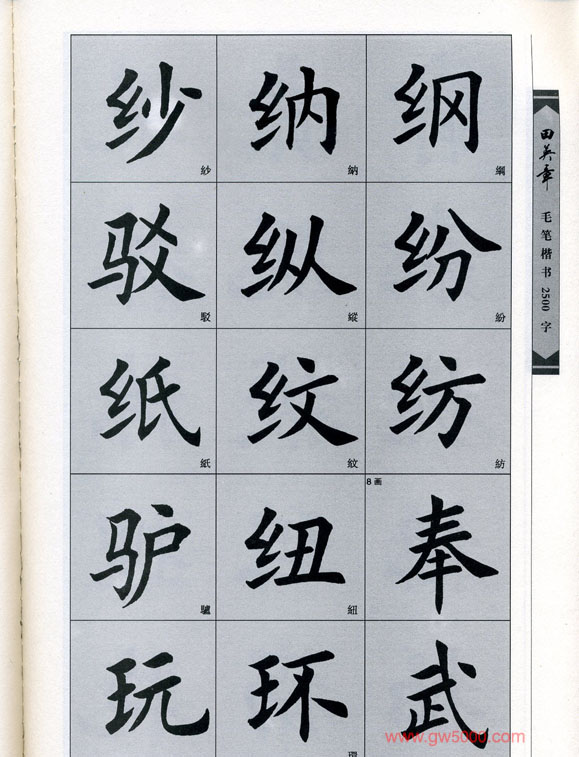 纱 纳 纲
紗 納 綱
驳 纵 纷
駁 縱 紛
纸 纹 纺
紙 紋 紡
8画
驴 纽 奉
驢 紐
玩 环 武
環
田英章
毛笔楷书2500字
www.gw5000.com